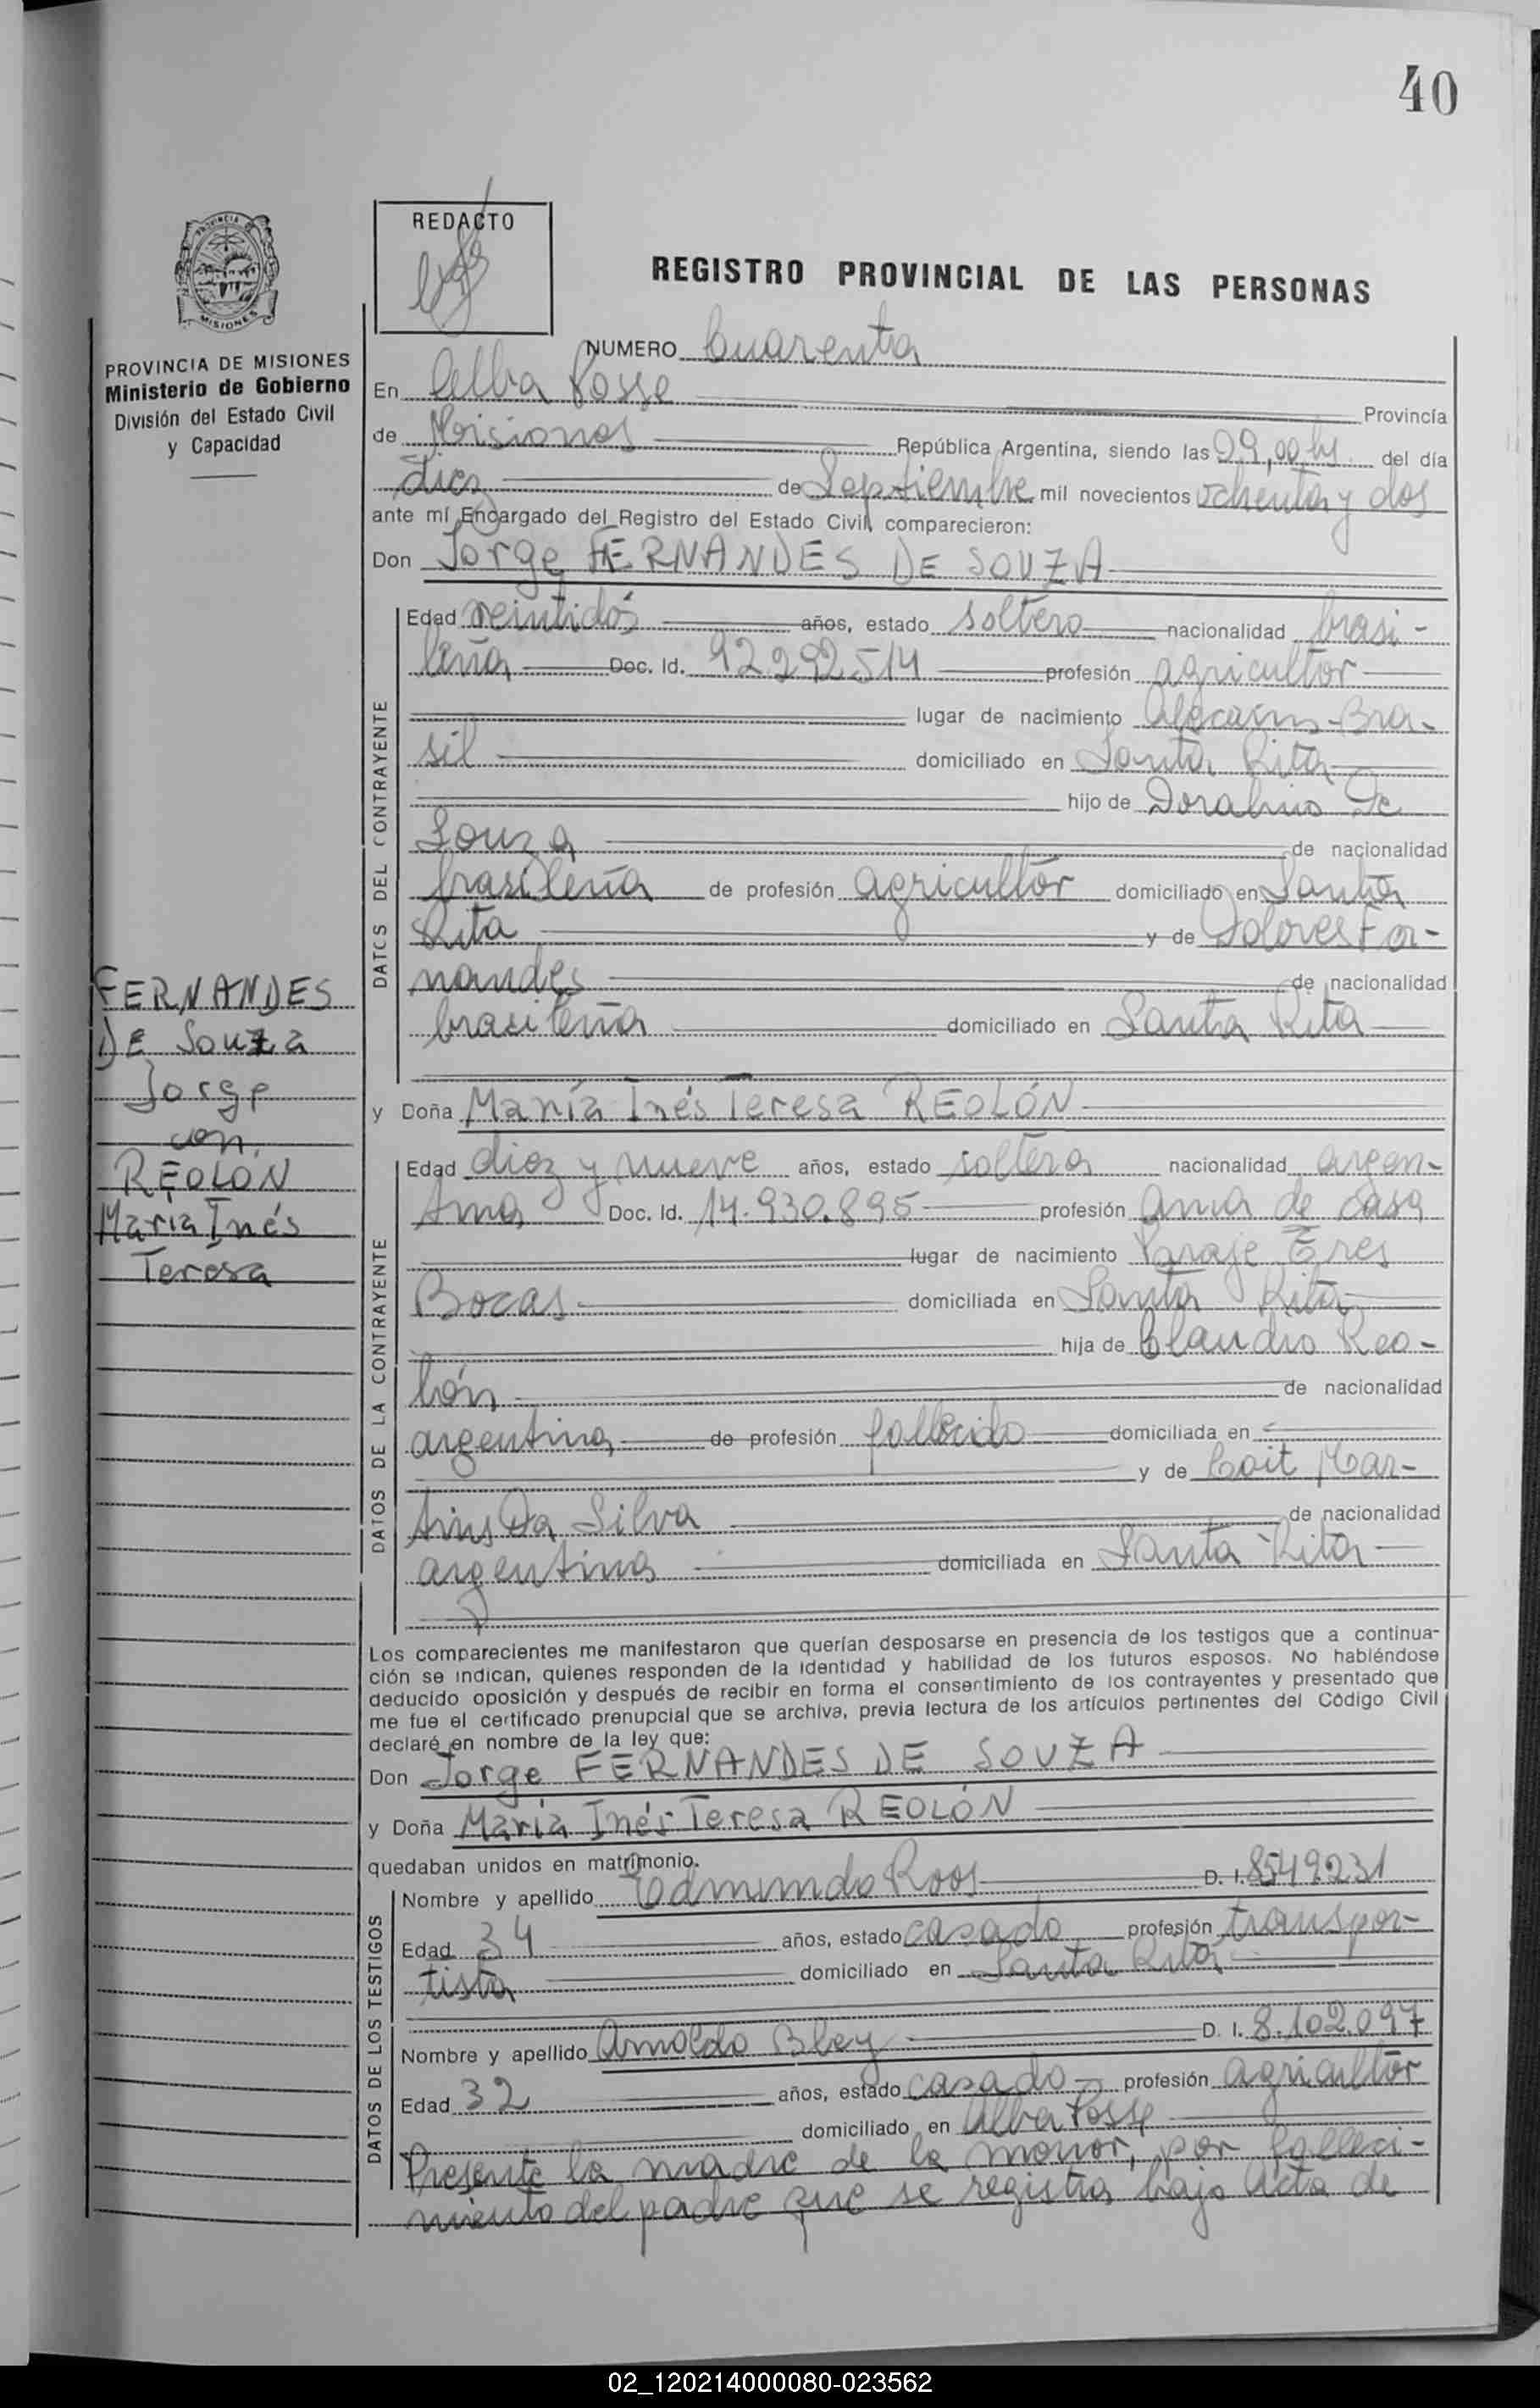 40
PROVINCIA
MISIONES
PROVINCIA DE MISIONES
Ministerio de Gobierno
División del Estado Civil
y Capacidad
FERNANDES
DE Souza
Jorge
con
REOLON
María Inés
Teresa
REDACTO
REGISTRO PROVINCIAL DE LAS PERSONAS
NUMERO Cuarenta
En Alba Posse Provincia
de Misiones República Argentina, siendo las 09,00 hs. del día
diez de Septiembre mil novecientos ochenta y dos
ante mí Encargado del Registro del Estado Civil comparecieron:
Don Jorge FERNANDES DE SOUZA
DATOS DEL CONTRAYENTE
Edad veintidós años, estado soltero nacionalidad brasi-
leña Doc. Id. 92292514 profesión agricultor
lugar de nacimiento Bra-
sil domiciliado en Santa Rita
hijo de Doralino De
Souza de nacionalidad
brasileña de profesión agricultor domiciliado en Santa
Rita y de Dolores Fer-
nandes de nacionalidad
brasileña domiciliado en Santa Rita
y Doña María Inés Teresa REOLÓN
DATOS DE LA CONTRAYENTE
Edad diez y nueve años, estado soltera nacionalidad argen-
tina Doc. Id. 14.930.895 profesión ama de casa
lugar de nacimiento Paraje Tres
Bocas domiciliada en Santa Rita
hija de Claudio Reo-
lón de nacionalidad
argentina de profesión fallecido domiciliada en
y de Mar-
tins Da Silva de nacionalidad
argentina domiciliada en Santa Rita
Los comparecientes me manifestaron que querían desposarse en presencia de los testigos que a continua-
ción se indican, quienes responden de la identidad y habilidad de los futuros esposos. No habiéndose
deducido oposición y después de recibir en forma el consentimiento de los contrayentes y presentado que
me fue el certificado prenupcial que se archiva, previa lectura de los artículos pertinentes del Código Civil
declaré en nombre de la ley que:
Don Jorge FERNANDES DE SOUZA
y Doña María Inés Teresa REOLÓN
quedaban unidos en matrimonio.
DATOS DE LOS TESTIGOS
Nombre y apellido Edmundo Roos D. I. 8549231
Edad 34 años, estado casado profesión transpor-
tista domiciliado en Santa Rita
Nombre y apellido Arnoldo Bley D. I. 8.102.097
Edad 32 años, estado casado profesión agricultor
domiciliado en Alba Posse
Presente la madre de la menor, por falleci-
miento del padre que se registra bajo Acta de
02_120214000080-023562